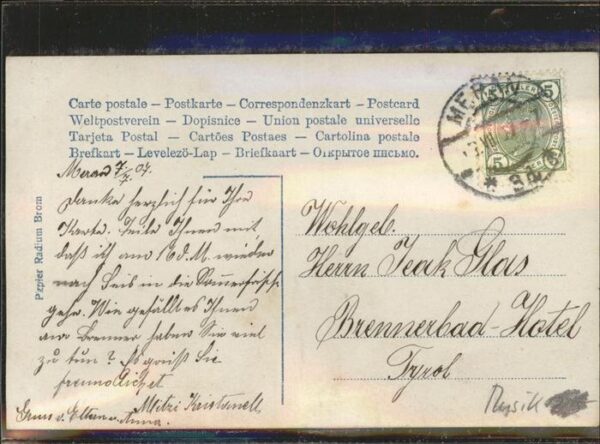 Carte postale – Postkarte – Correspondenzkart – Postcard
Weltpostverein – Dopisnice – Union postale universelle
Tarjeta Postal – Cartões Postaes – Cartolina postale
Brefkart – Levelező-Lap – Briefkaart – Открытое письмо.
Meran 7/7 04.
Danke herzlich für Ihre
Karte. Teile Ihnen mit
daß ich am 16 d. M. wieder
nach Seis in die Sommerfrische
gehe. Wie gefällt es Ihnen
am Brenner haben Sie viel
zu tun? Es grüßt Sie
freundlichst
Mitzi
Gruss v. Eltern u. Anna.
Papier Radium Brom
Wohlgeb.
Herrn Glas
Brennerbad-Hotel
Tyrol
Musik
5
5
5